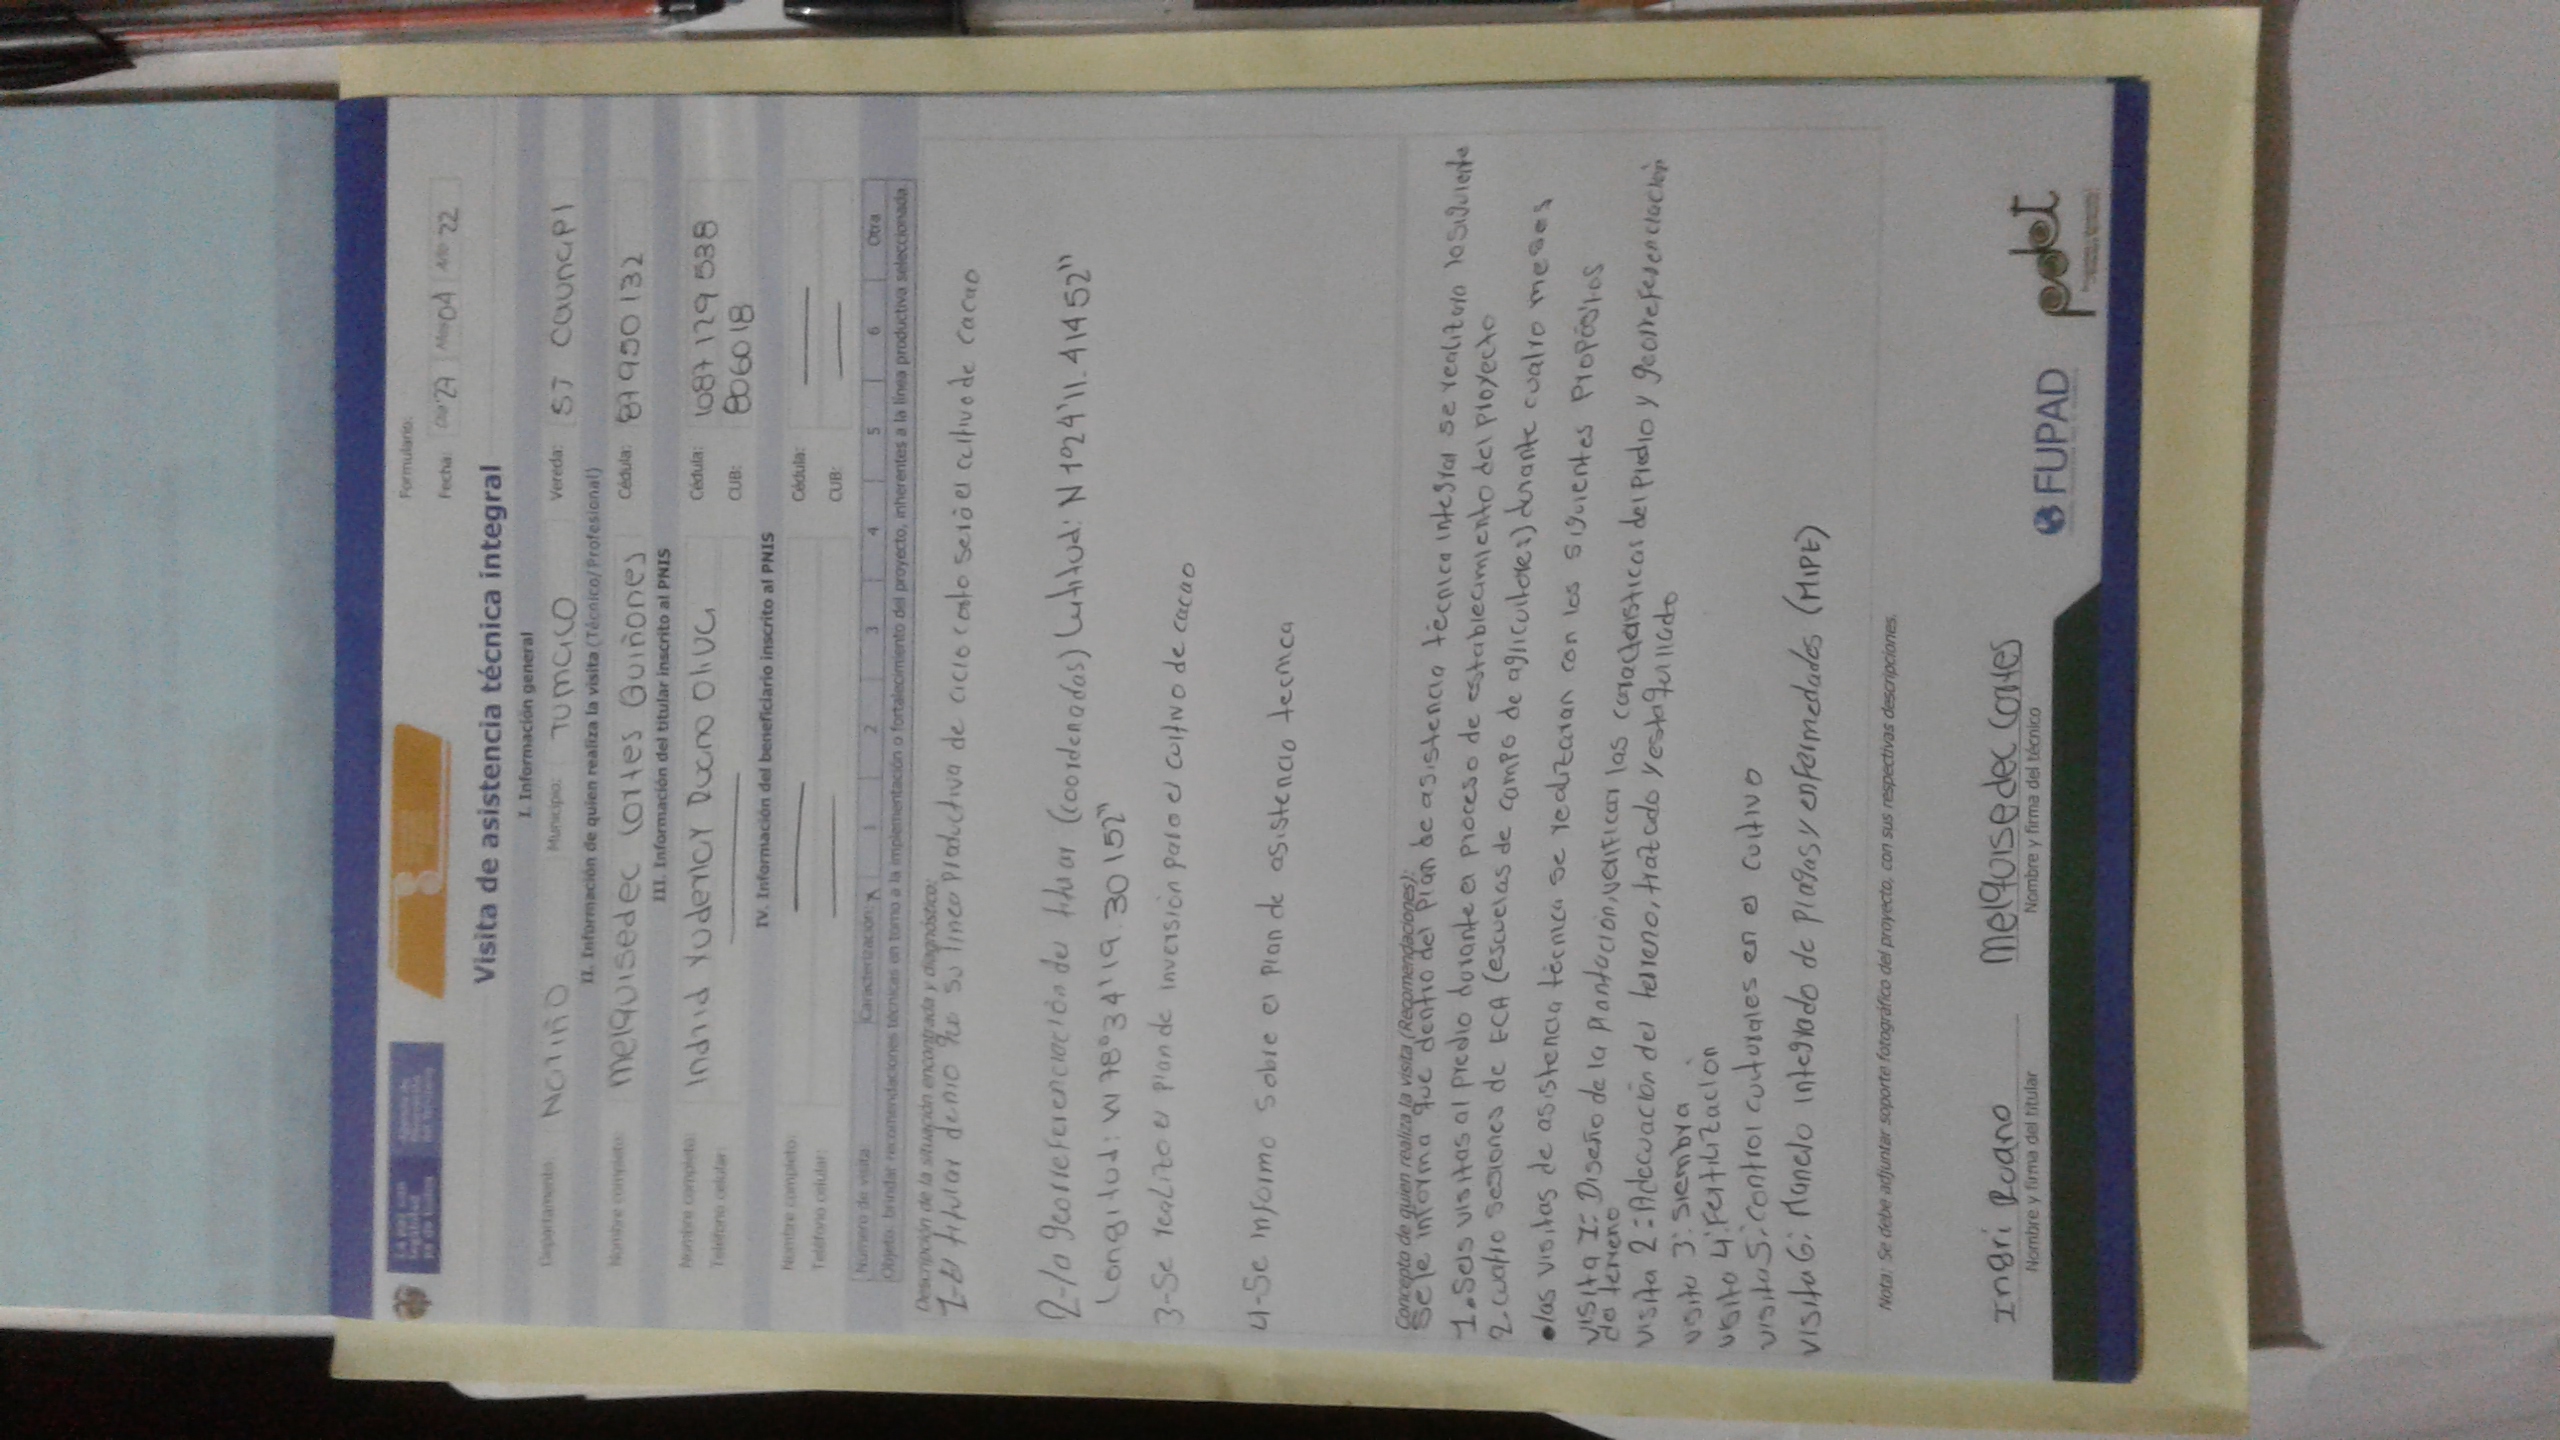 Formulario:
Fecha: Día 27 Mes 04 Año 22
Visita de asistencia técnica integral
I. Información general
Departamento: Nariño Municipio: Tumaco Vereda: ST Caunapi
II. Información de quien realiza la visita (Técnico/Profesional)
Nombre completo: Melquisedec Cortes Quiñones Cédula: 87950132
III. Información del titular inscrito al PNIS
Nombre completo: Indrid Yudernay Ruano Oliva Cédula: 1087129538
Teléfono celular: CUB: 806018
IV. Información del beneficiario inscrito al PNIS
Nombre completo: Cédula:
Teléfono celular: CUB:
Número de visita Caracterización: X 1 2 3 4 5 6 Otra
Objeto: brindar recomendaciones técnicas en torno a la implementación o fortalecimiento del proyecto, inherentes a la línea productiva seleccionada.
Descripción de la situación encontrada y diagnóstico:
1-El titular desino que su linea productiva de ciclo corto serò el cultivo de cacao
2-la georreferenciación del titular (coordenadas) Latitud: N 1°24'11.41452"
Longitud: W 78°34'19.30152"
3-Se realizo el plan de inversión para el cultivo de cacao
4-Se informo sobre el plan de asistencia tecnica
Concepto de quien realiza la visita (Recomendaciones):
Se le informa que dentro del plan de asistencia técnica integral se realizara lo siguiente
1. Seis visitas al predio durante el proceso de establecimiento del proyecto
2. cuatro sesiones de ECA (escuelas de campo de agricultores) durante cuatro meses
• las visitas de asistencia técnica se realizaran con los siguientes propósitos
visita 1: Diseño de la plantación, verificar las características del predio y georreferenciación
del terreno
visita 2: Adecuación del terreno, trazado y estaquillado
visita 3: siembra
visita 4: Fertilización
visita 5: control culturales en el cultivo
visita 6: Manejo integrado de plagas y enfermedades (MIPE)
Nota: Se debe adjuntar soporte fotográfico del proyecto, con sus respectivas descripciones.
Ingri Ruano Melquisedec Cortes
Nombre y firma del titular Nombre y firma del técnico
FUPAD pdet